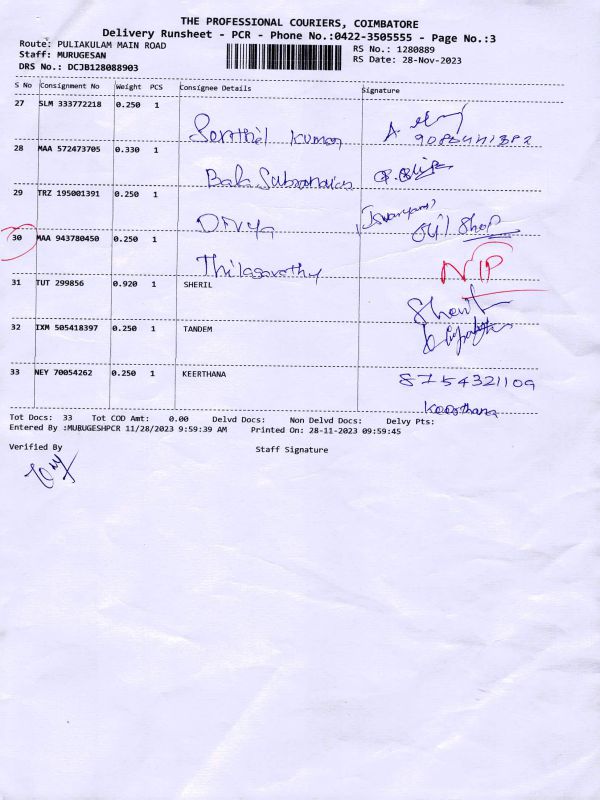 THE PROFESSIONAL COURIERS, COIMBATORE
Delivery Runsheet - PCR - Phone No.:0422-3505555 - Page No.:3
Route: PULIAKULAM MAIN ROAD
RS No.: 1280889
Staff: MURUGESAN
RS Date: 28-Nov-2023
DRS No.: DCJB128088903
S No Consignment No Weight PCS Consignee Details Signature
27 SLM 333772218 0.250 1
Senthil Kumar
28 MAA 572473705 0.330 1
Bala Subramanian
29 TRZ 195001391 0.250 1
Divya Oil Shop
30 MAA 943780450 0.250 1
Thilagavathy NIP
31 TUT 299856 0.920 1 SHERIL
32 IXM 505418397 0.250 1 TANDEM
33 NEY 70054262 0.250 1 KEERTHANA 8754321109
Keerthana
Tot Docs: 33 Tot COD Amt: 0.00 Delvd Docs: Non Delvd Docs: Delvy Pts:
Entered By :MUBUGESHPCR 11/28/2023 9:59:39 AM Printed On: 28-11-2023 09:59:45
Verified By
Staff Signature